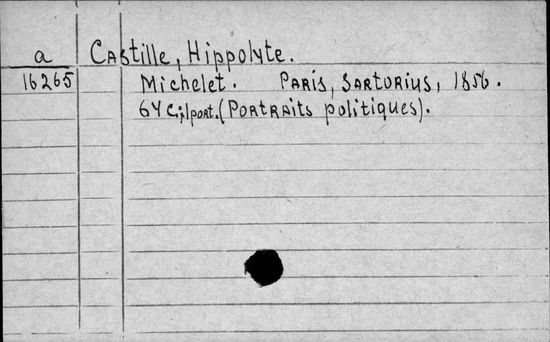 a Castille, Hippolyte.
16265 Michelet. Paris, Sartorius, 1856.
64 c.;1port. (Portraits politiques).